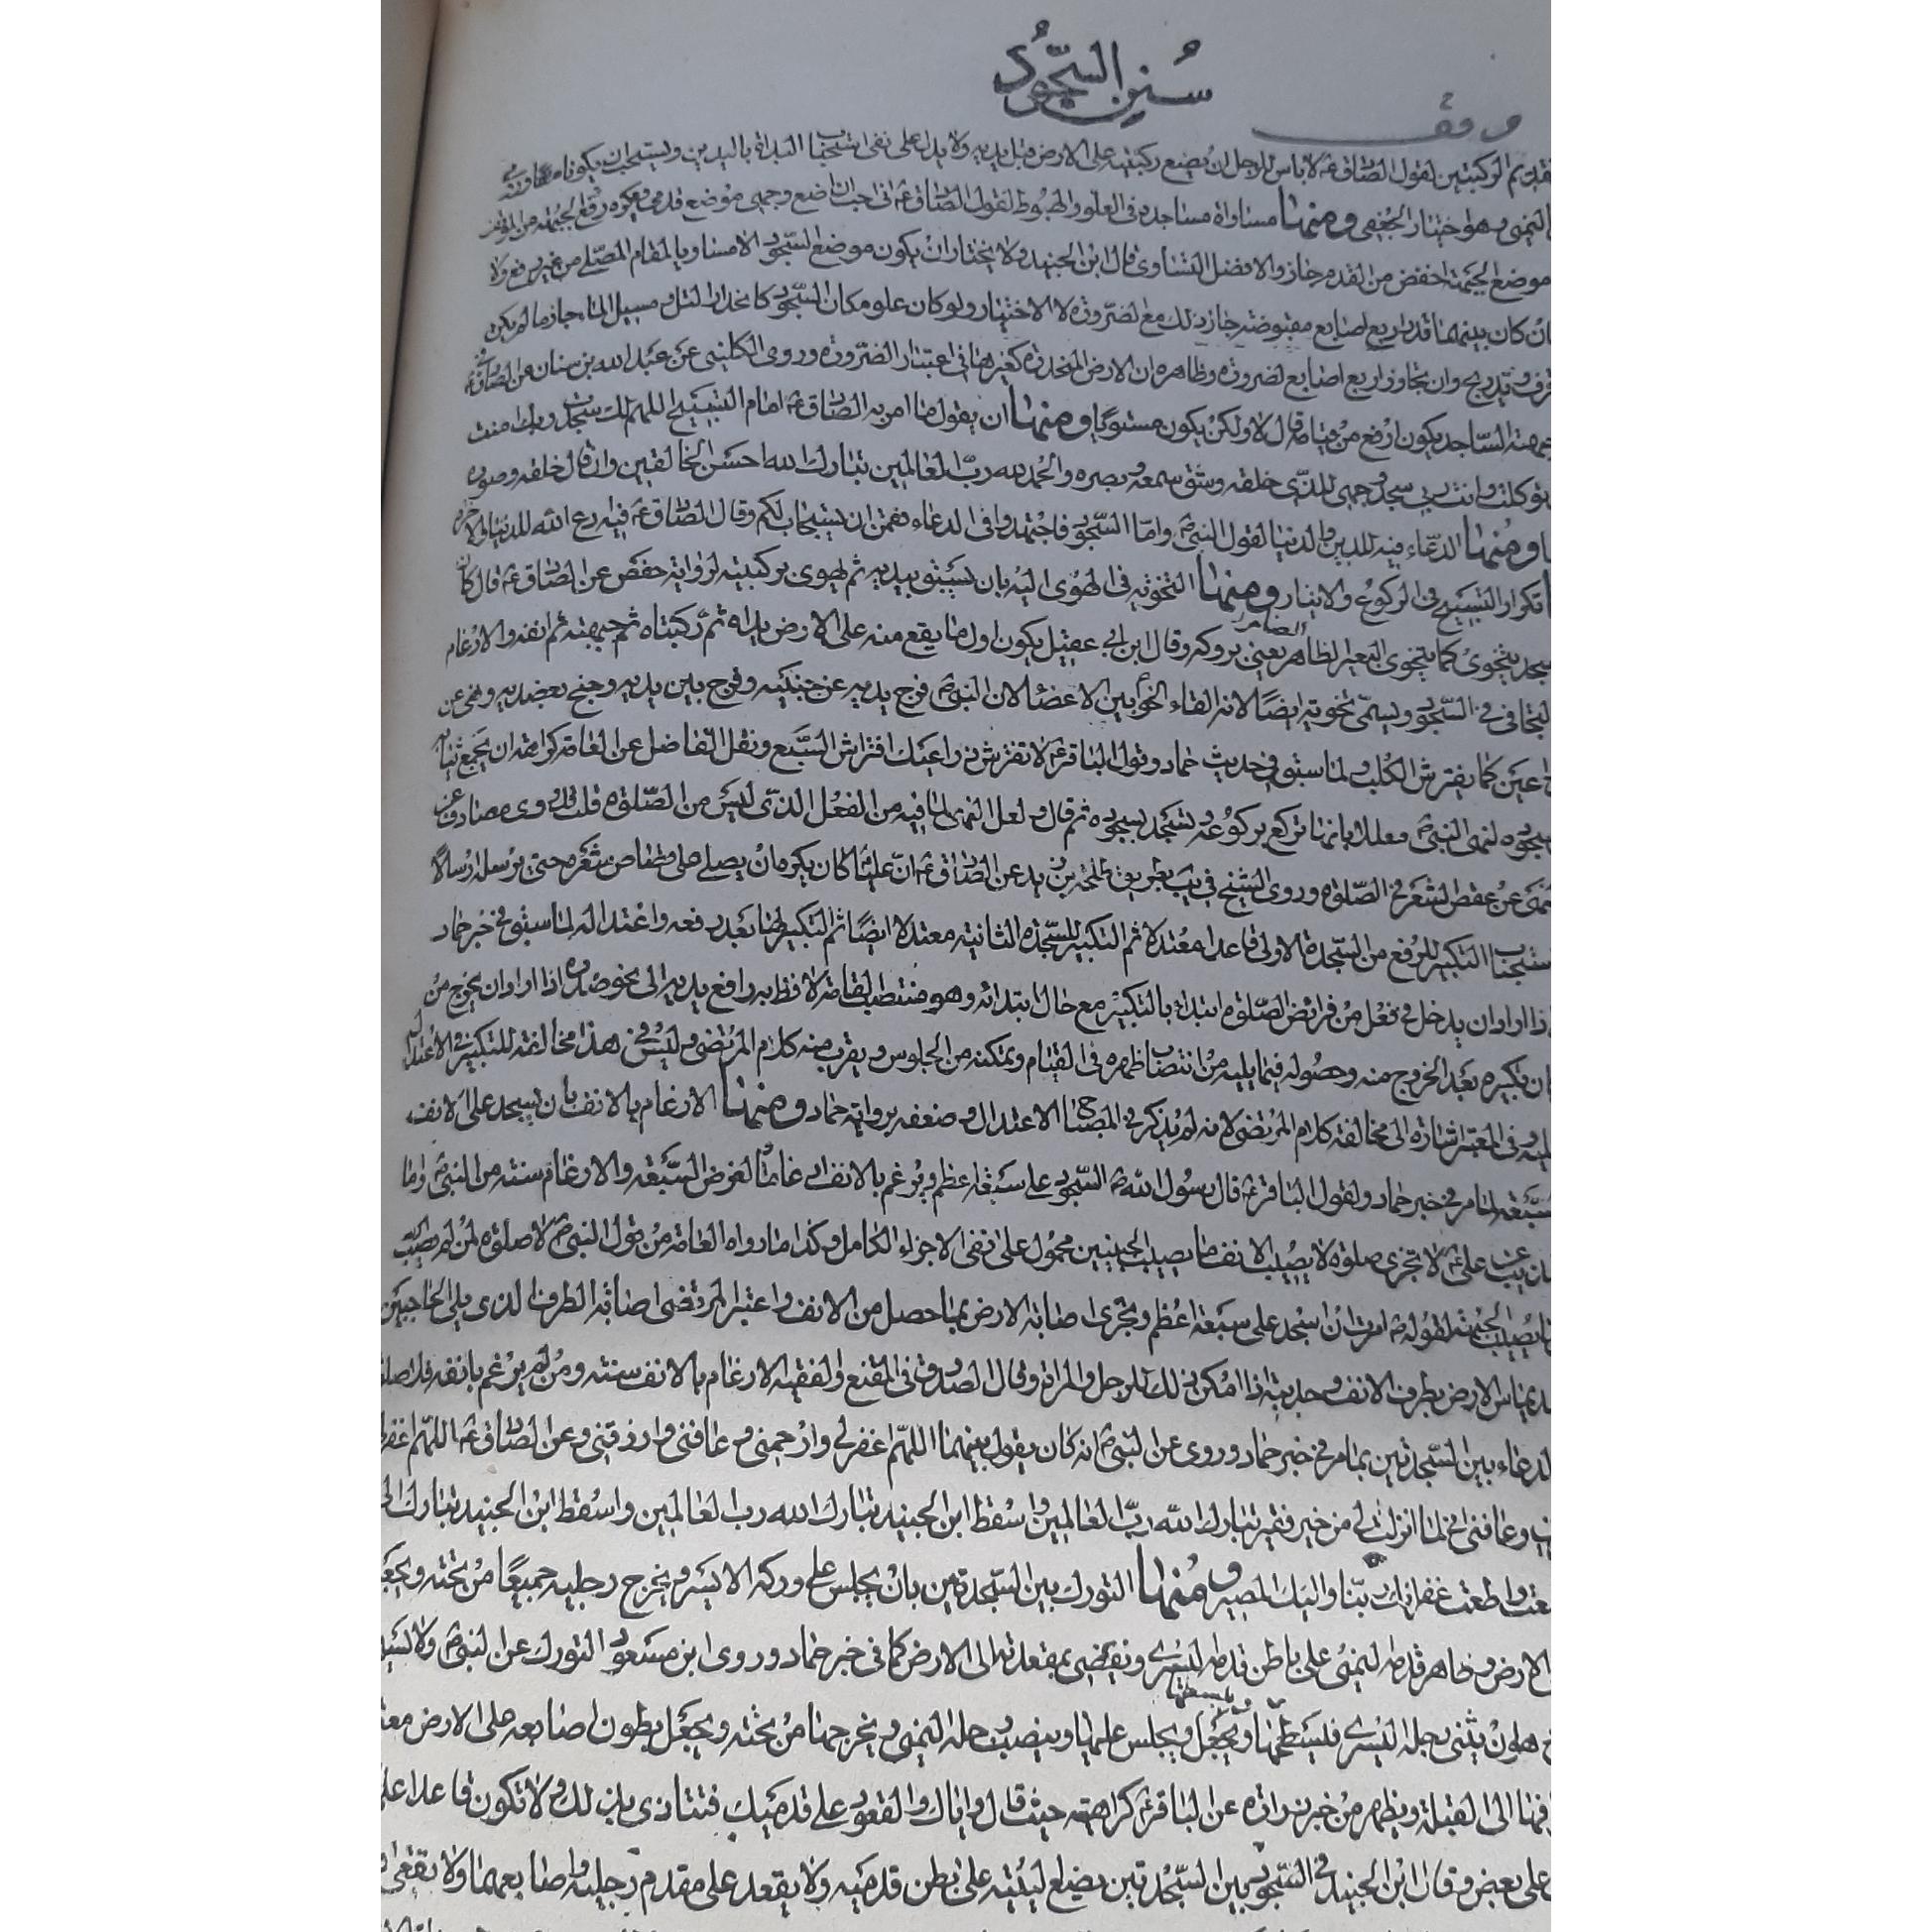 سُنن السّجُود
وقف
تقديم الركبتين لقول الصّادق ع لا باس للرجل ان يضع ركبتيه على الارض قبل يديه ولا يدل على نفى استحباب البداة باليدين ويستحب ان يكونا معا وفي
اليمنى وهو اختيار الجُعفي ومنها مساواة مساجده فى العلو والهبُوط لقول الصّادق ع انى احب ان اضع وجهى موضع قدمى ويكره رفع الجبهة عن الموقف
موضع الجبهة اخفض من القدم جاز والافضل التساوى قال ابن الجنيد ولا يختار ان يكون موضع السّجود الا مساويا لمقام المصلّى من غير رفع ولا
فان كان بينهما قدر اربع اصابع مقبوضة جاز ذلك مع الضّرورة لا الاختيار ولو كان علو مكان السّجود كانحدار التل ومسيل الماء جاز ما لم يكن
وان تجاوز اربع اصابع لضرورة وظاهره ان الارض المنحدرة كغيرها فى اعتبار الضّرورة وروى الكلينى عن عبد الله بن سنان عن الصّادق ع
جبهة السّاجد يكون ارفع من قيامه قال لا ولكن يكون مستويا ومنها ان يقول ما امر به الصّادق ع امام التسبيح اللهم لك سجدت وبك امنت
توكلت وانت ربى سجد وجهى للذّى خلقه وشق سمعه وبصره والحمد لله ربّ العالمين تبارك الله احسن الخالقين وان قال خلقه وصوره
ومنها الدّعاء فيه للدين والدنيا لقول النبىّ ص وامّا السّجود فاجتهدوا فى الدعاء فقمن ان يستجاب لكم وقال الصّادق ع فيه ادع الله للدنيا والاخرة
تكرار التسبيح فى الركوع والايثار ومنها التخوية فى الهُوى اليه بان يسبق بيديه ثم يهوى بركبتيه لرواية حفص عن الصّادق ع قال كان
سجد يتخوى كما يتخوى البعير الظاهر الضامر يعنى بروكه وقال ابن ابى عقيل يكون اول ما يقع منه على الارض يداه ثم ركبتاه ثم جبهته ثم انفه والارغام
التجافى فى السّجود ويسمى تخوية ايضًا لانه القاء الخوا بين الاعضاء لان النبىّ ص فرج يديه عن جنبيه وفرج بين يديه وجنح بعضديه ونهى عن
كما يفترش الكلب ولما سبق فى حديث حماد وقول الباقر ع لا تفترش ذراعيك افتراش السّبع ونقل الفاضل عن العامة كراهة ان يجمع ثيابه
سجوده لنهى النبىّ ص معللا بانها تركع بركوعه وتسجد بسجوده ثم قال ولعل النهى لما فيه من الفعل الذى ليس من الصّلوة قلت قد روى مصادف عن
عقص الشعر فى الصّلوة وروى الشيخ فى يب بطريق طلحة بن زيد عن الصّادق ع انّ عليّا ع كان يكره ان يصلى على قصاص شعره حتى يرسله ارسالا
استحباب التكبير للرفع من السّجدة الاولى قاعدا معتدلا ثم التكبير للسّجدة الثانية معتدلا ايضًا ثم التكبير لها بعد رفعه واعتداله لما سبق فى خبر حماد
اذا اراد ان يدخل فى فعل من فرائض الصّلوة ابتدأ بالتكبير مع حال ابتدائه وهو منتصب القامة لافظ به رافع يديه الى نحو صدره اذا اراد ان يخرج من
كان تكبيره بعد الخروج منه وحصوله فيما يليه من انتصاب ظهره فى القيام وتمكنه من الجلوس ويقرب منه كلام المرتضى وليس فى هذا مخالفة للتكبير فى الاعتدال
فى المعتبر اشارة الى مخالفة كلام المرتضى لانه لم يذكر فى المصباح الاعتدال وضعفه برواية حماد ومنها الارغام بالانف بان يسجد على الانف
السّبعة لما مر فى خبر حماد ولقول الباقر ع قال رسول الله ص السّجود على سبعة اعظم ويرغم بالانف ارغاما الفرض السّبعة والارغام سنة من النبىّ ص واما
عن علىّ ع لا تجزى صلوة لا يصيب الانف ما يصيب الجبينين محمول على نفى الاجزاء الكامل وكذا ما رواه العامة من قول النبىّ ص لا صلوة لمن لم يصب
ما يصيب الجبهة لقوله ص امرت ان اسجد على سبعة اعظم ويجزى اصابة الارض بما حصل من الانف واعتبر المرتضى اصابة الطرف الذى يلى الحاجبين
يماس الارض بطرف الانف وحديثه اذا امكن ذلك للرجل والمراة وقال الصدوق فى المقنع والفقيه الارغام بالانف سنة ومن لم يرغم بانفه فلا صلوة
الدعاء بين السّجدتين بما مر فى خبر حماد وروى عن النبىّ ص انه كان يقول بينهما اللهمّ اغفر لى وارحمنى وعافنى وارزقنى وعن الصّادق ع اللهمّ اغفر
وعافنى انى لما انزلت الى من خير فقير تبارك الله ربّ العالمين واسقط ابن الجنيد تبارك الله رب العالمين واسقط ابن الجنيد تبارك
سمعت واطعت غفرانك ربّنا واليك المصير ومنها التورك بين السّجدتين بان يجلس على وركه الايسر ويخرج رجليه جميعًا من تحته ويجعل
الارض وظاهر قدمه اليمنى على باطن قدمه اليسرى ويفضى بمقعدته الى الارض كما فى خبر حماد وروى ابن مسعود التورك عن النبىّ ص ولا يستحب
هو ان يثنى رجله اليسرى فيبسطها ويجلس عليها وينصب رجله اليمنى ويخرجها من تحته ويجعل بطون اصابعه على الارض معتمدا
الى القبلة ويظهر من خبر زرارة عن الباقر ع كراهته حيث قال واياك والقعود على قدميك فتتاذى بذلك ولا تكون قاعدا على
على بعض وقال ابن الجنيد فى السّجود بين السّجدتين يضع اليتيه على بطن قدميه ولا يقعد على مقدم رجليه واصابعهما ولا يقعى